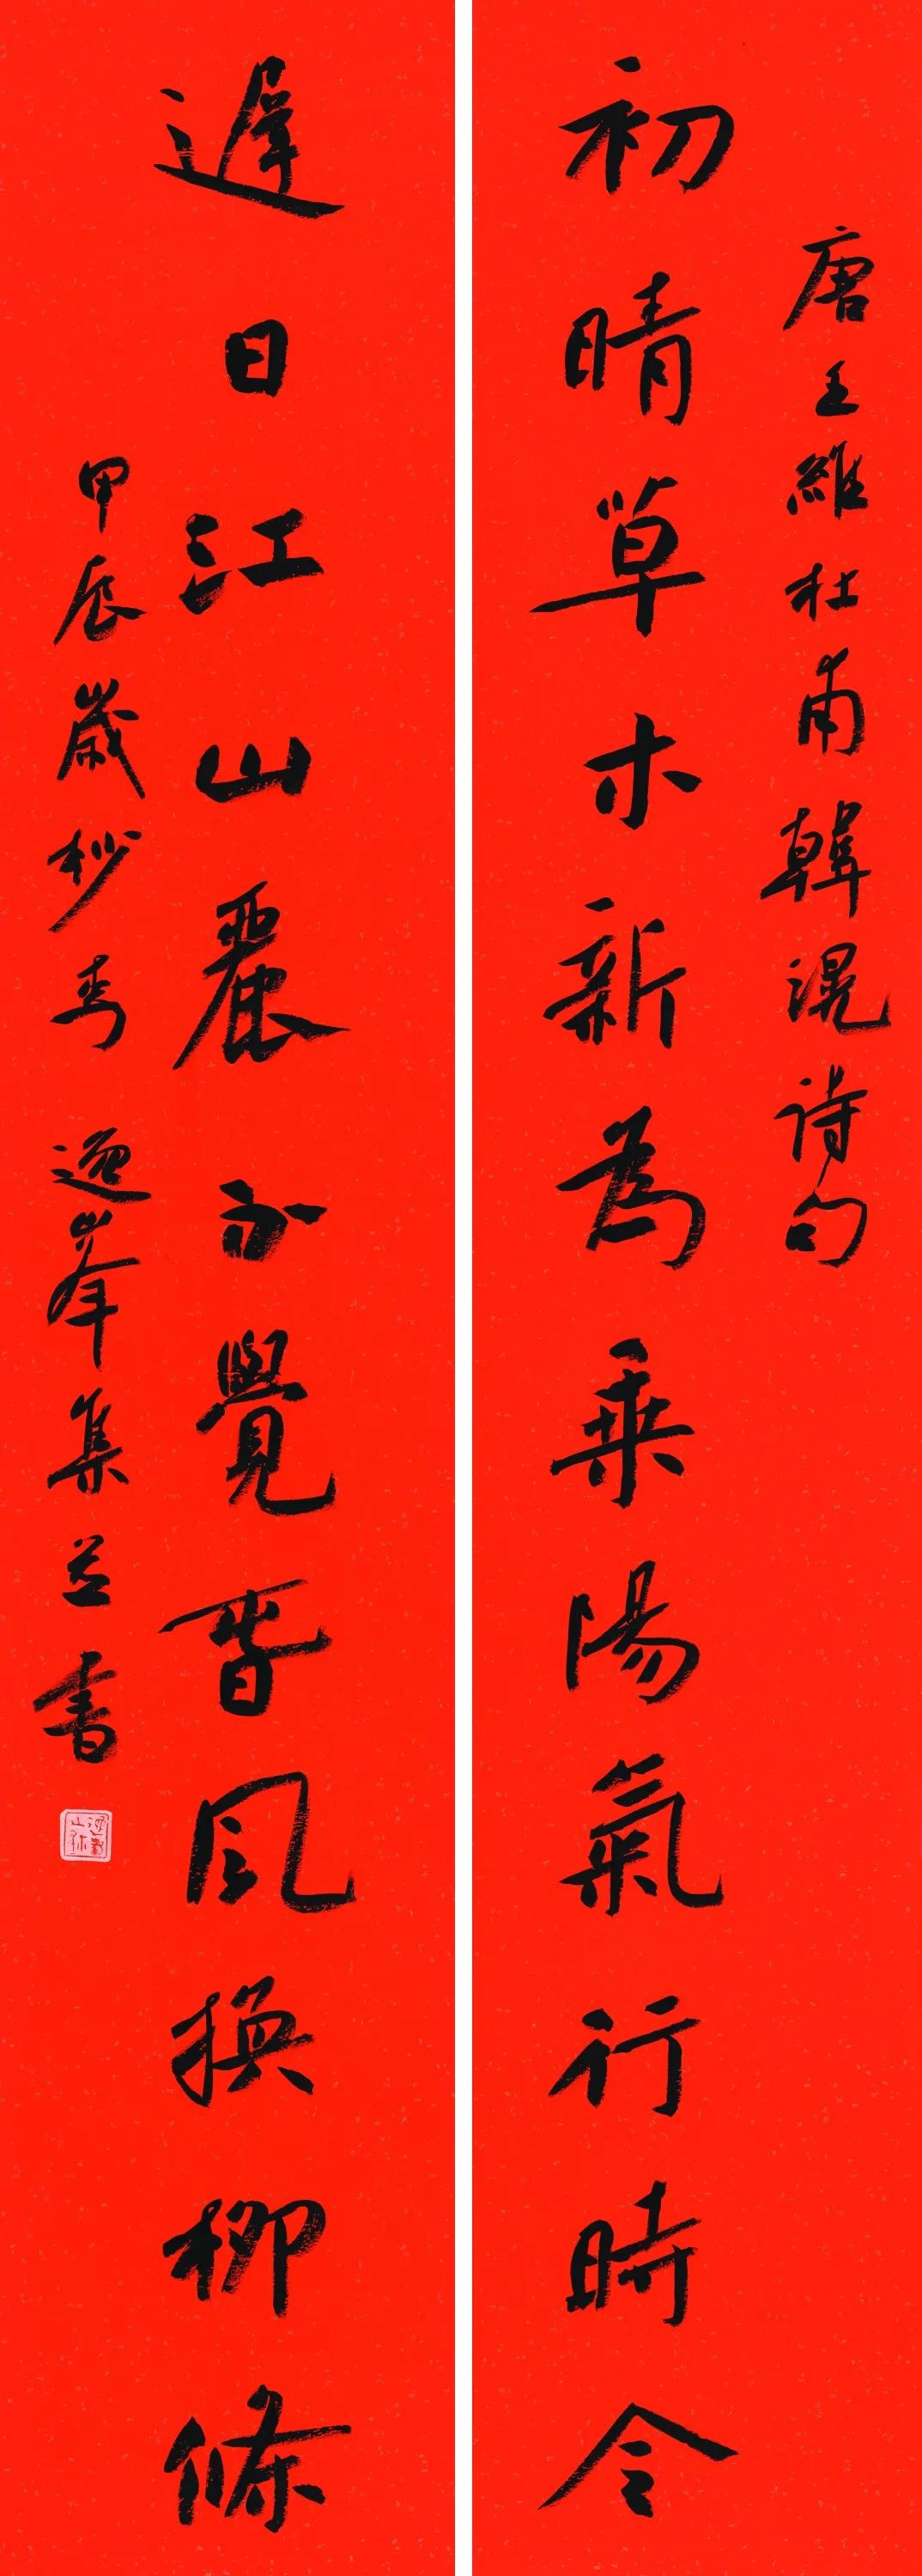 唐王維杜甫韓滉詩句
初晴草木新為乘陽氣行時令
遲日江山麗不覺春風換柳條
甲辰歲杪 逸峯集並書